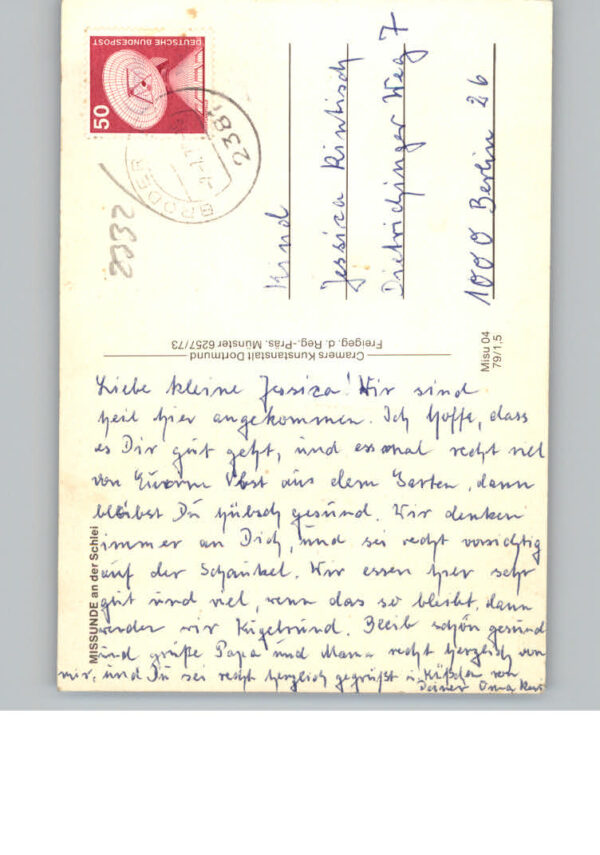 DEUTSCHE BUNDESPOST
50
2381
BRODER
2332
Kind
Jessica Kintisch
Dietrichinger Weg 7
1000 Berlin 26
Cramers Kunstanstalt Dortmund
Freigeg. d. Reg.-Präs. Münster 6257/73
Misu 04
79/1,5
MISSUNDE an der Schlei
Liebe kleine Jessica! Wir sind
heil hier angekommen. Ich hoffe, dass
es Dir gut geht, und ess mal recht viel
von Eurem Obst aus dem Garten, dann
bleibst Du hübsch gesund. Wir denken
immer an Dich, und sei recht vorsichtig
auf der Schaukel. Wir essen hier sehr
gut und viel, wenn das so bleibt, dann
werden wir Kugelrund. Bleib schön gesund
und grüße Papa und Mama recht herzlich von
mir, und Du sei recht herzlich gegrüßt u. Küßchen von
Deiner Oma